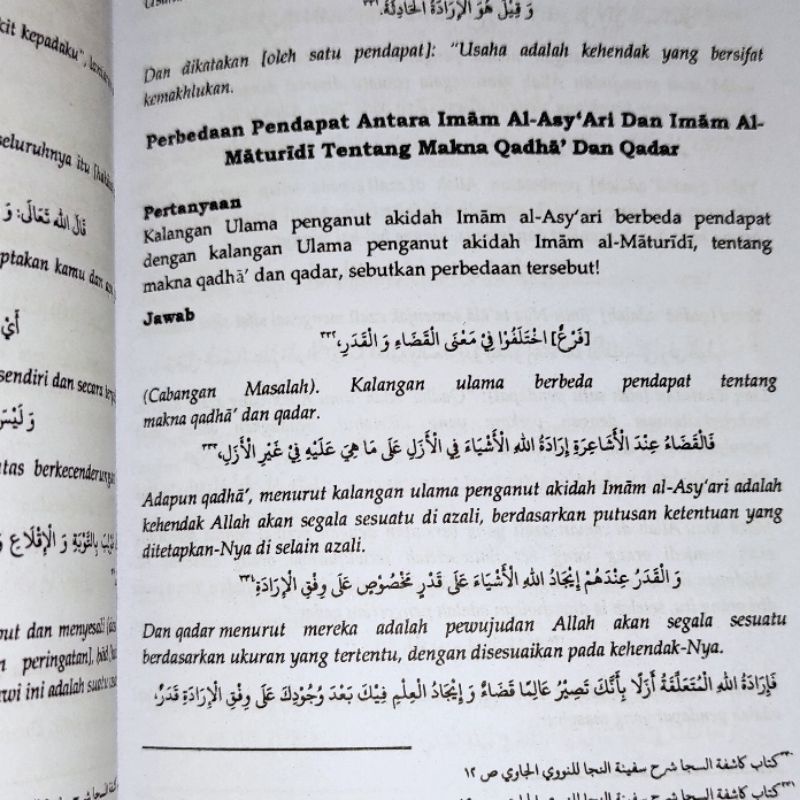 kit kepadaku",
seluruhnya itu
قَالَ اللهُ تَعَالَى: وَ
ptakan kamu dan
أَيْ
sendiri dan secara
وَ لَيْسَ
atas berkecenderungan
بِالتَّوْبَةِ وَ الْإِقْلَاعِ
but dan menyesali
n peringatan],
wi ini adalah suatu
وَ قِيْلَ هُوَ الْإِرَادَةُ الْحَادِثَةُ.٣٣١
Dan dikatakan [oleh satu pendapat]: "Usaha adalah kehendak yang bersifat
kemakhlukan.
Perbedaan Pendapat Antara Imām Al-Asy‘Ari Dan Imām Al-
Māturīdī Tentang Makna Qadhā’ Dan Qadar
Pertanyaan
Kalangan Ulama penganut akidah Imām al-Asy‘ari berbeda pendapat
dengan kalangan Ulama penganut akidah Imām al-Māturīdī, tentang
makna qadhā’ dan qadar, sebutkan perbedaan tersebut!
Jawab
[فَرْعٌ] اخْتَلَفُوْا فِيْ مَعْنَى الْقَضَاءِ وَ الْقَدَرِ،٣٣٢
(Cabangan Masalah). Kalangan ulama berbeda pendapat tentang
makna qadhā’ dan qadar.
فَالْقَضَاءُ عِنْدَ الْأَشَاعِرَةِ إِرَادَةُ اللهِ الْأَشْيَاءَ فِي الْأَزَلِ عَلَى مَا هِيَ عَلَيْهِ فِيْ غَيْرِ الْأَزَلِ،٣٣٣
Adapun qadhā’, menurut kalangan ulama penganut akidah Imām al-Asy‘ari adalah
kehendak Allah akan segala sesuatu di azali, berdasarkan putusan ketentuan yang
ditetapkan-Nya di selain azali.
وَ الْقَدَرُ عِنْدَهُمْ إِيْجَادُ اللهِ الْأَشْيَاءَ عَلَى قَدْرٍ مَخْصُوْصٍ عَلَى وِفْقِ الْإِرَادَةِ؛٣٣٤
Dan qadar menurut mereka adalah pewujudan Allah akan segala sesuatu
berdasarkan ukuran yang tertentu, dengan disesuaikan pada kehendak-Nya.
فَإِرَادَةُ اللهِ الْمُتَعَلِّقَةُ أَزَلًا بِأَنَّكَ تَصِيْرُ عَالِمًا قَضَاءٌ وَ إِيْجَادُ الْعِلْمِ فِيْكَ بَعْدَ وُجُوْدِكَ عَلَى وِفْقِ الْإِرَادَةِ قَدَرٌ،
كتاب كاشفة السجا شرح سفينة النجا للنووي الجاوي ص ١٢
كتاب كاشفة السجا شرح سفينة النجا للنووي الجاوي ص ١٢